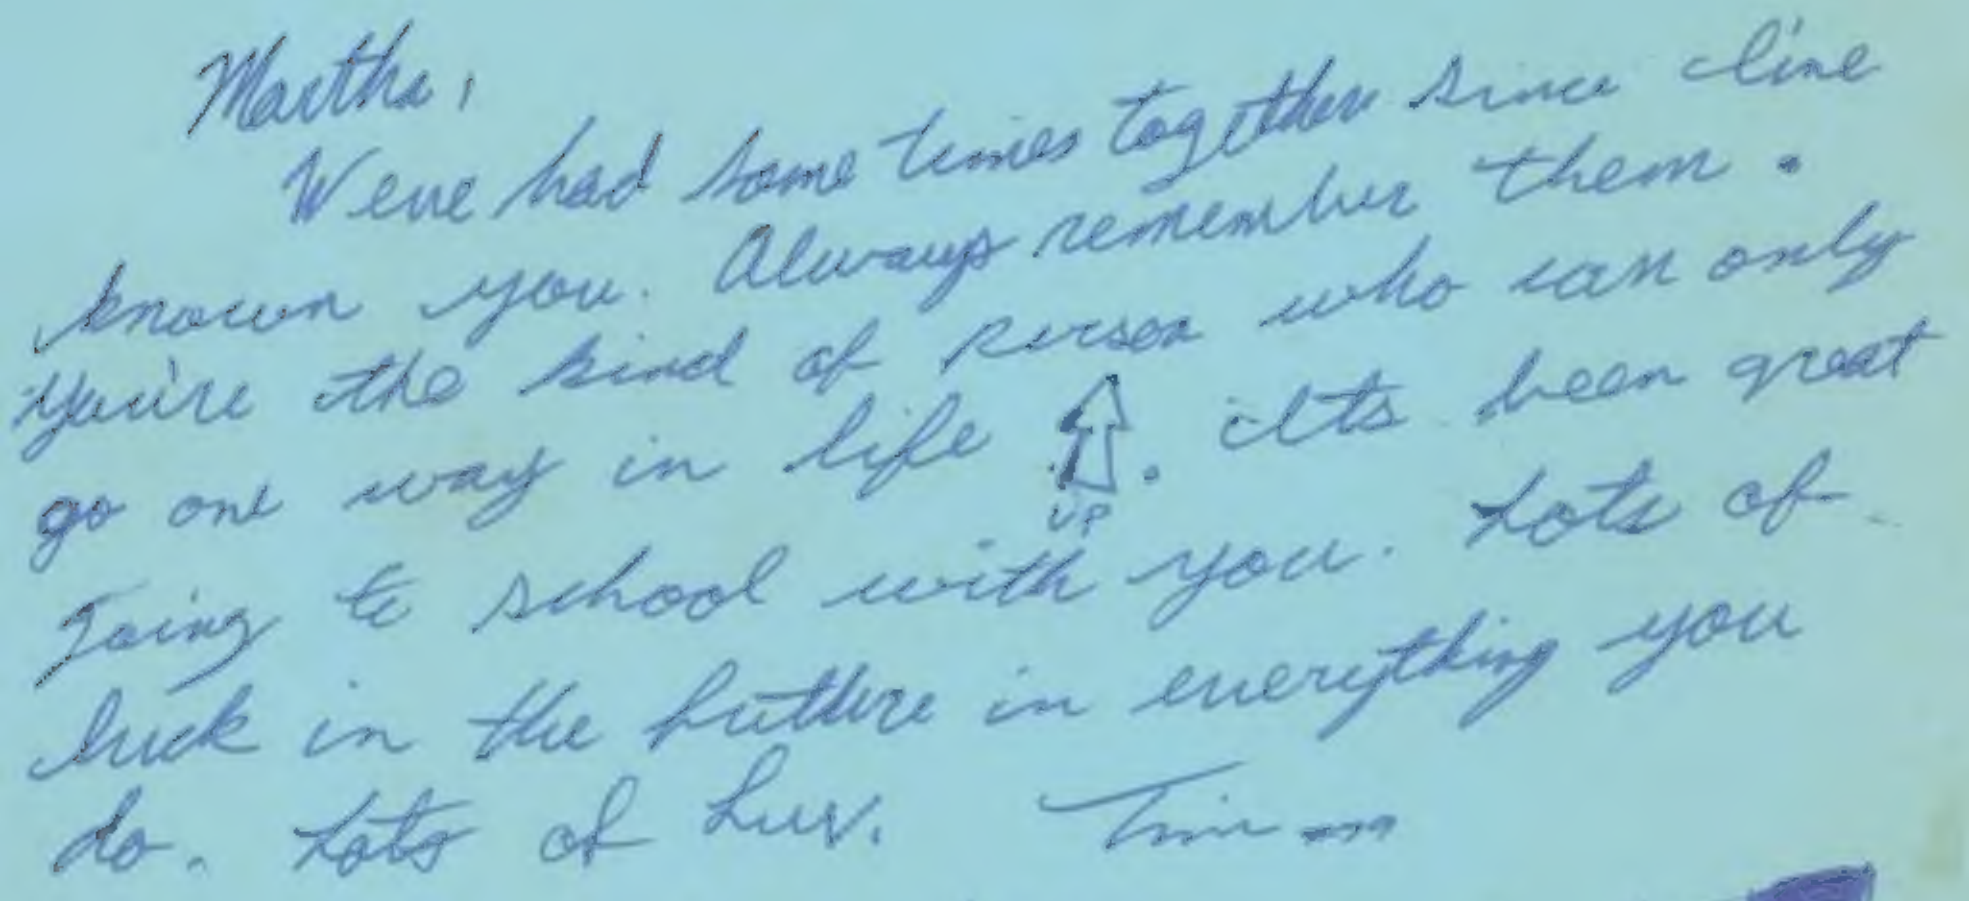 Martha,
Weve had some times together since I've
known you. Always remember them.
You're the kind of person who can only
go one way in life ⇧. Its been great
UP
Going to school with you. Lots of
luck in the futture in everything you
do. Lots of Luv. Tim